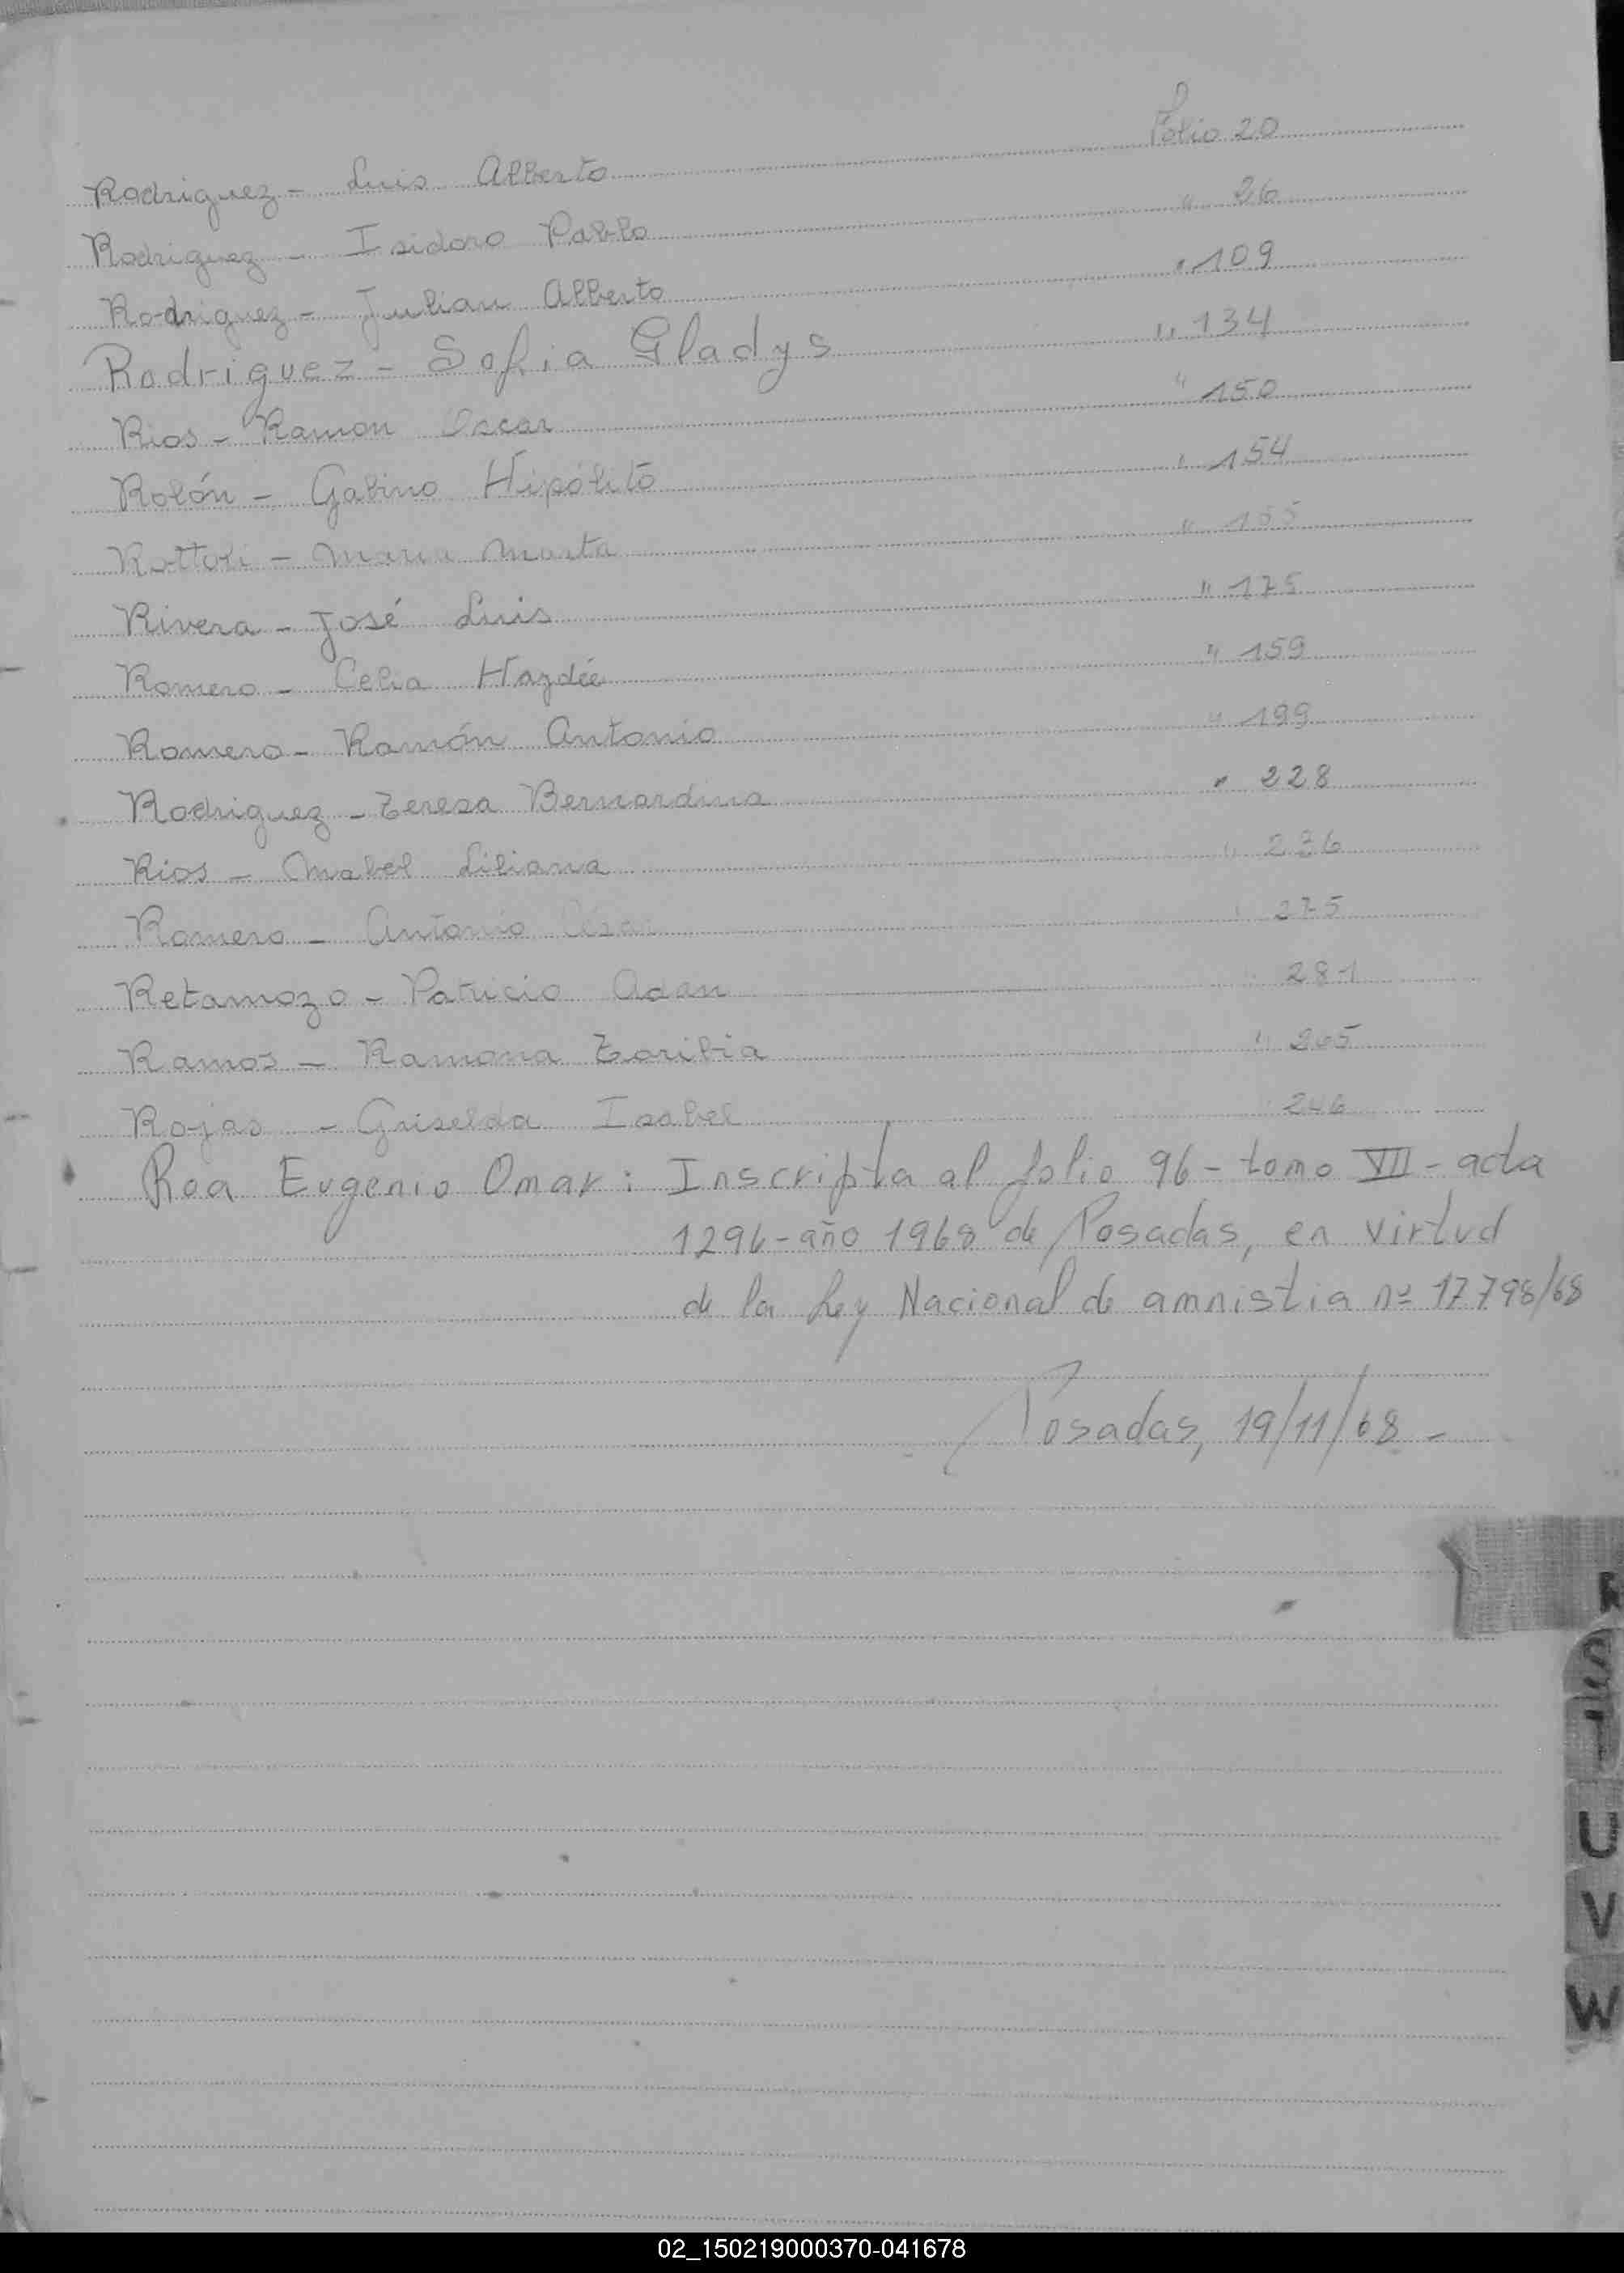 Rodriguez - Luis Alberto Folio 20
Rodriguez - Isidoro Pablo " 26
Rodriguez - Julian Alberto " 109
Rodriguez - Sofia Gladys " 134
Rios - Ramon Oscar " 150
Rolón - Gabino Hipólito " 154
Rottoli - Maria Marta " 155
Rivera - José Luis " 175
Romero - Celia Haydée " 159
Romero - Ramón Antonio " 199
Rodriguez - Teresa Bernardina " 228
Rios - Mabel Liliana " 236
Romero - Antonio César " 275
Retamozo - Patricio Adan " 281
Ramos - Ramona Toribia "
Rojas - Griselda Isabel 246
Roa Eugenio Omar: Inscripta al folio 96 - tomo VII - acta
1296 - año 1968 de Posadas, en virtud
de la Ley Nacional de amnistia nº 17798/68
Posadas, 19/11/68 -
R
S
T
U
V
W
02_150219000370-041678